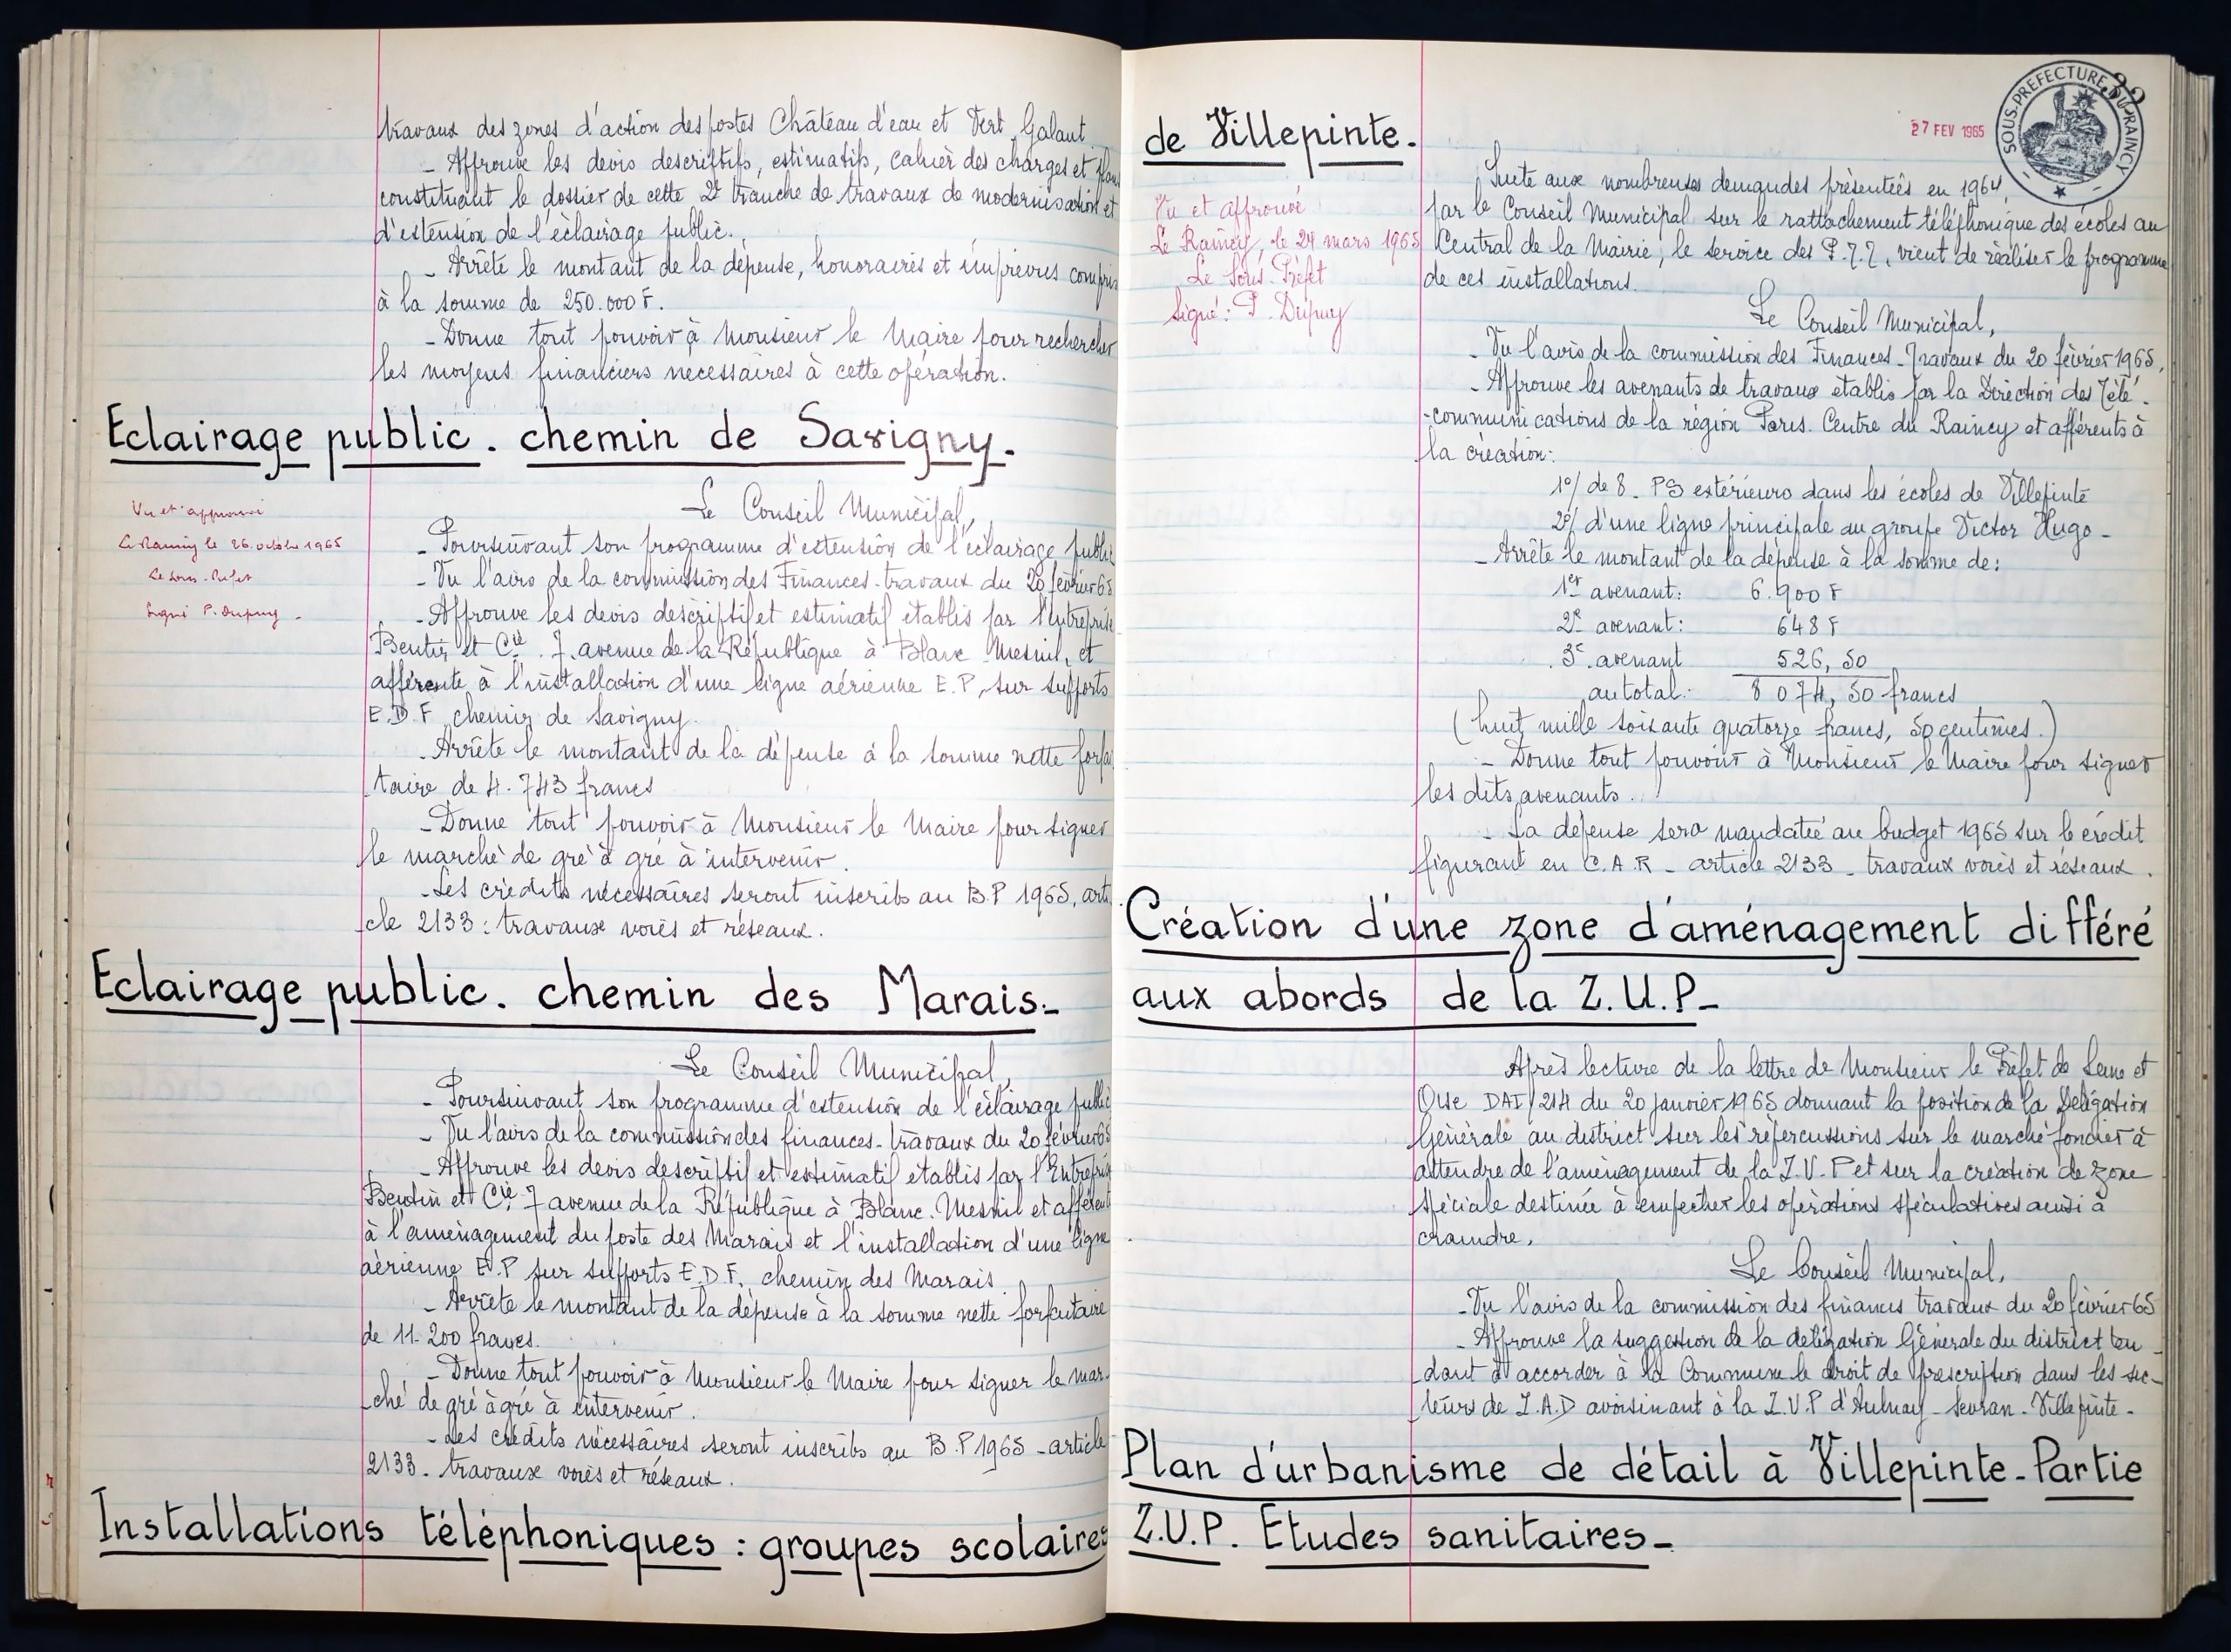 travaux des zones d'action des postes Château d'eau et Vert Galant
- Approuve les devis descriptifs, estimatifs, cahier des charges et plans
constituant le dossier de cette 2e tranche de travaux de modernisation et
d'extension de l'éclairage public.
- Arrête le montant de la dépense, honoraires et imprévus compris
à la somme de 250.000 F.
- Donne tout pouvoir à Monsieur le Maire pour rechercher
les moyens financiers nécessaires à cette opération.
Eclairage public. chemin de Savigny.
Vu et approuvé
Le Raincy le 26 octobre 1965
Le Sous-Préfet
Signé P. Dupuy -
Le Conseil Municipal,
- Poursuivant son programme d'extension de l'éclairage public
- Vu l'avis de la commission des Finances-travaux du 20 février 65
- Approuve les devis descriptif et estimatif établis par l'Entreprise
Bentin et Cie. 7, avenue de la République à Blanc-Mesnil, et
afférente à l'installation d'une ligne aérienne E.P, sur supports
E.D.F chemin de Savigny.
- Arrête le montant de la dépense à la somme nette forfai
taire de 4.743 francs
- Donne tout pouvoir à Monsieur le Maire pour signer
le marché de gré à gré à intervenir.
- Les crédits nécessaires seront inscrits au B.P 1965, arti
cle 2133 : travaux voies et réseaux.
Eclairage public. chemin des Marais-
Le Conseil Municipal,
- Poursuivant son programme d'extension de l'éclairage public
- Vu l'avis de la commission des finances-travaux du 20 février 65
- Approuve les devis descriptif et estimatif établis par l'Entreprise
Bentin et Cie, 7 avenue de la République à Blanc-Mesnil et afférent
à l'aménagement du poste des Marais et l'installation d'une ligne
aérienne E.P sur supports E.D.F, chemin des Marais
- Arrête le montant de la dépense à la somme nette forfaitaire
de 11.200 francs.
- Donne tout pouvoir à Monsieur le Maire pour signer le mar-
-ché de gré à gré à intervenir.
- Les crédits nécessaires seront inscrits au B.P 1965 - article
2133 - travaux voies et réseaux.
Installations téléphoniques : groupes scolaires
de Villepinte.
27 FEV 1965
SOUS-PREFECTURE DU RAINCY
Vu et approuvé
Le Raincy, le 24 mars 1965
Le Sous-Préfet
Signé : P. Dupuy
Suite aux nombreuses demandes présentées en 1964,
par le Conseil Municipal sur le rattachement téléphonique des écoles au
Central de la Mairie, le service des P.T.T, vient de réaliser le programme
de ces installations.
Le Conseil Municipal,
- Vu l'avis de la commission des Finances-Travaux du 20 février 1965,
- Approuve les avenants de travaux établis par la Direction des Télé-
-communications de la région Paris. Centre du Raincy et afférents à
la création :
1°/ de 8 - PS extérieurs dans les écoles de Villepinte
2°/ d'une ligne principale au groupe Victor Hugo -
- Arrête le montant de la dépense à la somme de :
1er avenant : 6.900 F
2e avenant : 648 F
3e avenant 526,50
au total : 8 074,50 francs
(huit mille soixante quatorze francs, 50 centimes.)
- Donne tout pouvoir à Monsieur le Maire pour signer
les dits avenants.
- La dépense sera mandatée au budget 1965 sur le crédit
figurant en C.A.R - article 2133 - travaux voies et réseaux.
Création d'une zone d'aménagement différé
aux abords de la Z.U.P-
Après lecture de la lettre de Monsieur le Préfet de Seine et
Oise DAI/214 du 20 janvier 1965 donnant la position de la Délégation
Générale au district sur les répercussions sur le marché foncier à
attendre de l'aménagement de la Z.U.P et sur la création de zone
spéciale destinée à empêcher les opérations spéculatives aussi à
craindre.
Le Conseil Municipal,
- Vu l'avis de la commission des finances travaux du 20 février 65
- Approuve la suggestion de la délégation Générale du district ten-
-dant à accorder à la Commune le droit de prescription dans les sec-
teurs de Z.A.D avoisinant à la Z.U.P d'Aulnay-Sevran-Villepinte-
Plan d'urbanisme de détail à Villepinte-Partie
Z.U.P. Etudes sanitaires-